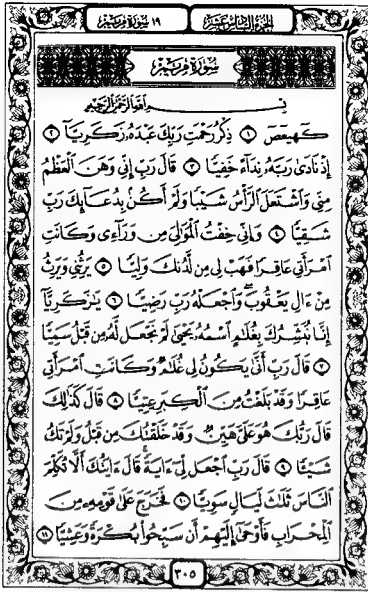 الجزء السادس عشر ١٩ سورة مريم
سورة مريم
بسم الله الرحمن الرحيم
كٓهيعٓصٓ ١ ذِكْرُ رَحْمَتِ رَبِّكَ عَبْدَهُۥ زَكَرِيَّآ ٢
إِذْ نَادَىٰ رَبَّهُۥ نِدَآءً خَفِيًّا ٣ قَالَ رَبِّ إِنِّى وَهَنَ ٱلْعَظْمُ
مِنِّى وَٱشْتَعَلَ ٱلرَّأْسُ شَيْبًا وَلَمْ أَكُنۢ بِدُعَآئِكَ رَبِّ
شَقِيًّا ٤ وَإِنِّى خِفْتُ ٱلْمَوَٰلِىَ مِن وَرَآءِى وَكَانَتِ
ٱمْرَأَتِى عَاقِرًا فَهَبْ لِى مِن لَّدُنكَ وَلِيًّا ٥ يَرِثُنِى وَيَرِثُ
مِنْ ءَالِ يَعْقُوبَ وَٱجْعَلْهُ رَبِّ رَضِيًّا ٦ يَٰزَكَرِيَّآ
إِنَّا نُبَشِّرُكَ بِغُلَٰمٍ ٱسْمُهُۥ يَحْيَىٰ لَمْ نَجْعَل لَّهُۥ مِن قَبْلُ سَمِيًّا
٧ قَالَ رَبِّ أَنَّىٰ يَكُونُ لِى غُلَٰمٌ وَكَانَتِ ٱمْرَأَتِى
عَاقِرًا وَقَدْ بَلَغْتُ مِنَ ٱلْكِبَرِ عِتِيًّا ٨ قَالَ كَذَٰلِكَ
قَالَ رَبُّكَ هُوَ عَلَىَّ هَيِّنٌ وَقَدْ خَلَقْتُكَ مِن قَبْلُ وَلَمْ تَكُ
شَيْـًٔا ٩ قَالَ رَبِّ ٱجْعَل لِّىٓ ءَايَةً قَالَ ءَايَتُكَ أَلَّا تُكَلِّمَ
ٱلنَّاسَ ثَلَٰثَ لَيَالٍ سَوِيًّا ١٠ فَخَرَجَ عَلَىٰ قَوْمِهِۦ مِنَ
ٱلْمِحْرَابِ فَأَوْحَىٰٓ إِلَيْهِمْ أَن سَبِّحُوا۟ بُكْرَةً وَعَشِيًّا ١١
٣٠٥